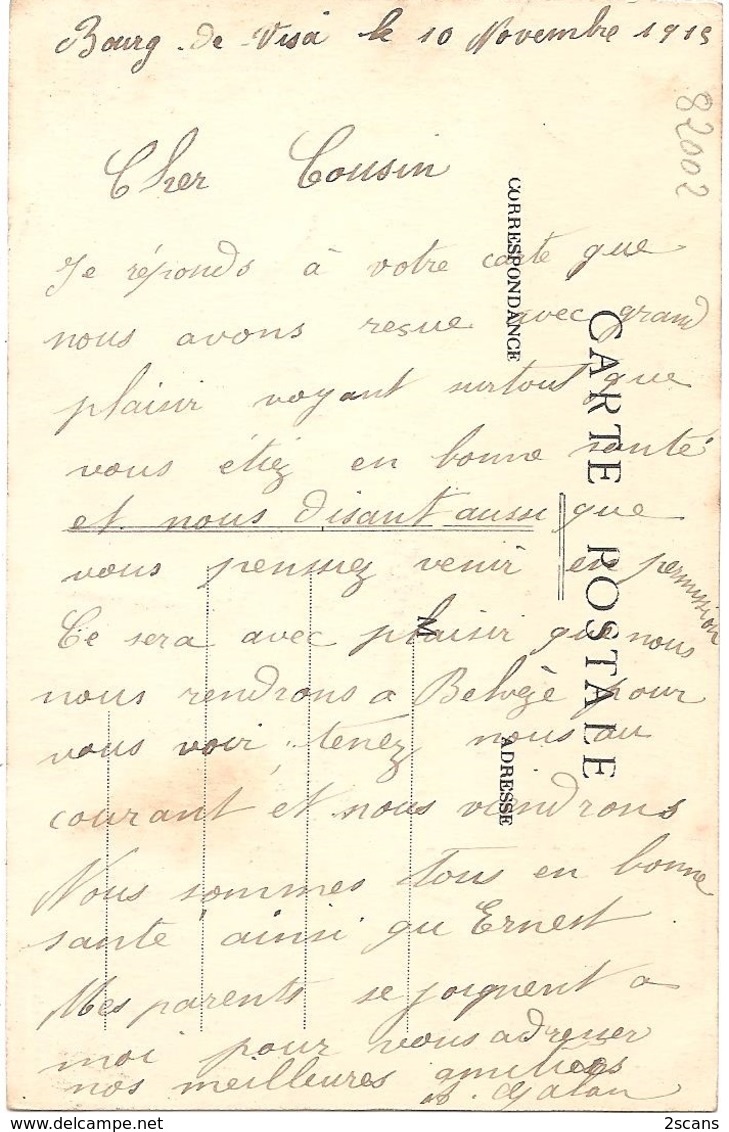 Bourg de Visa le 10 Novembre 1915
82002
Cher Cousin
Je réponds à votre carte que
nous avons reçue avec grand
plaisir voyant surtout que
vous étiez en bonne santé
et nous disant aussi que
vous pensiez venir en permission
Ce sera avec plaisir que nous
nous rendrons a Belvèze pour
vous voir, tenez nous au
courant et nous viendrons
Nous sommes tous en bonne
santé ainsi qu Ernest
Mes parents se joignent a
moi pour vous adresser
nos meilleures amitiés
CORRESPONDANCE
CARTE POSTALE
M
ADRESSE
2scans